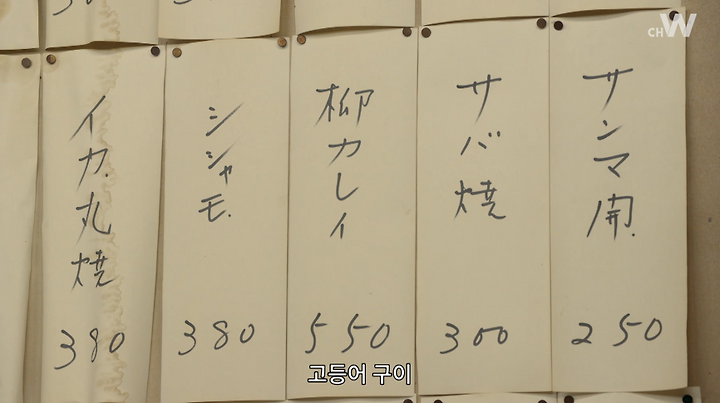 CH W
サンマ開
250
サバ焼
300
柳カレイ
550
シシャモ
380
イカ丸焼
380
고등어 구이